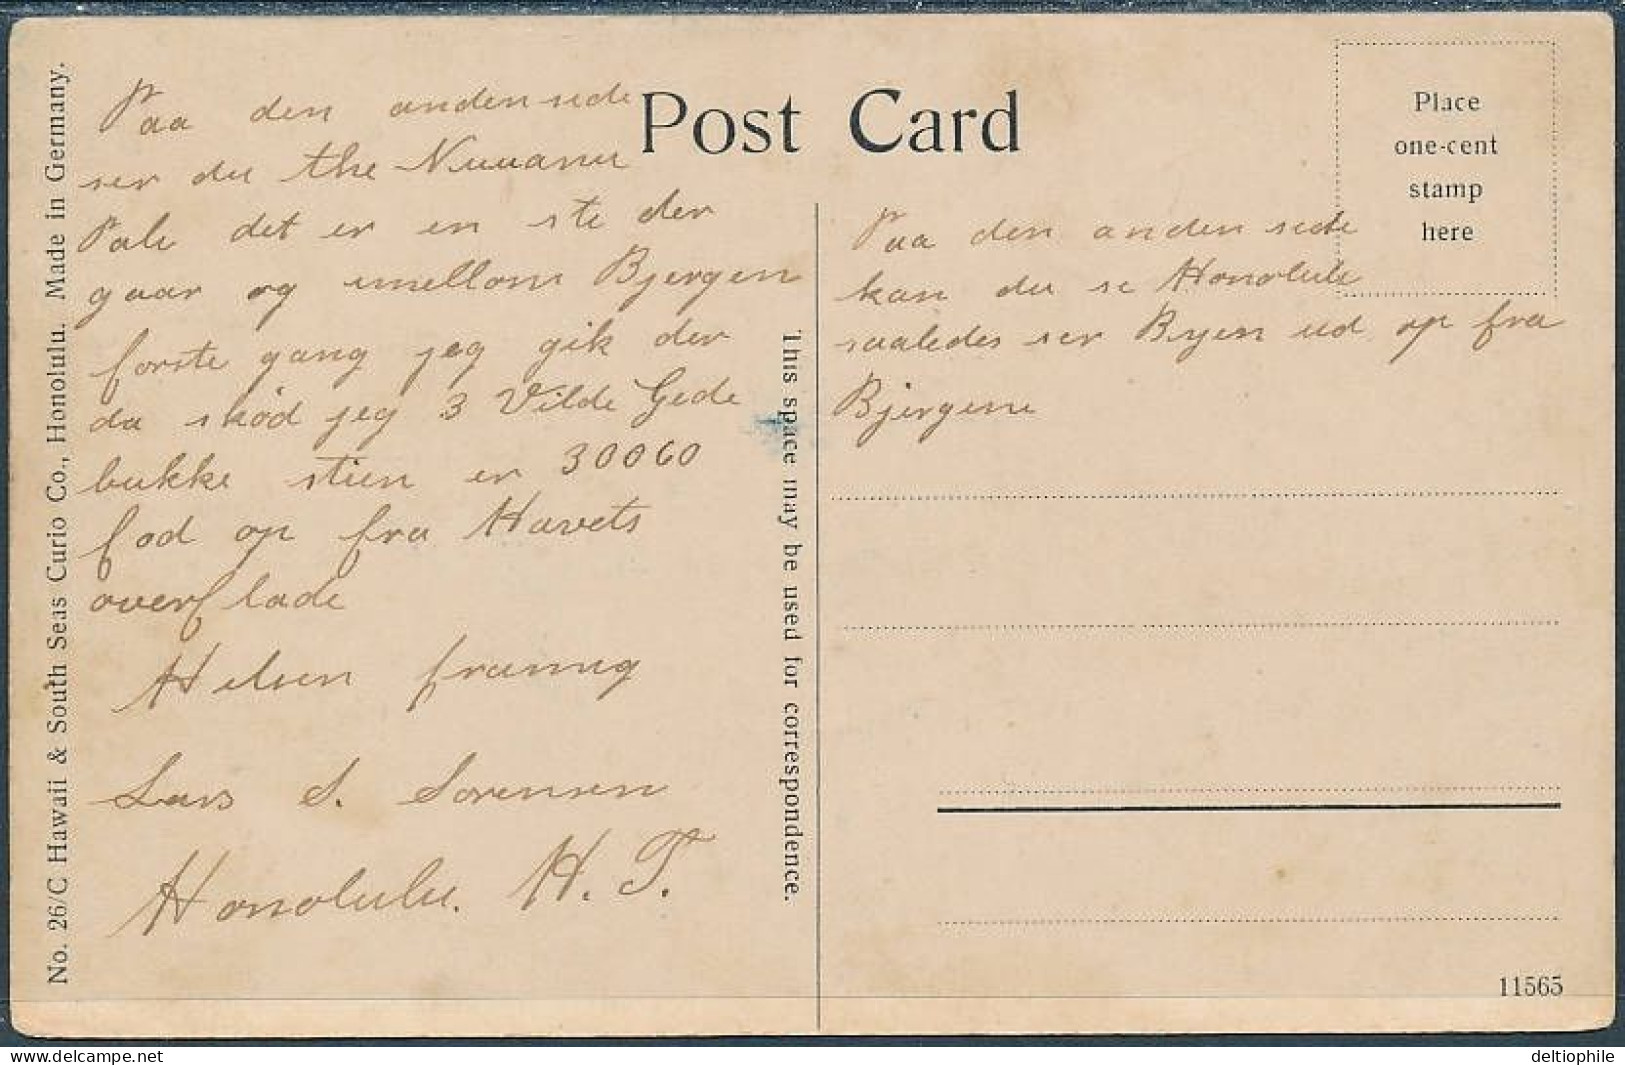 Post Card
Place
one-cent
stamp
here
Paa den anden side
ser du the Nuuanu
Pali det er en ste der
gaar og imellom Bjergen
forste gang jeg gik der
da skød jeg 3 Vilde Gede
bukke stien er 30060
fod op fra Havets
overflade
Hilsen framig
Lars S. Sorensen
Honolulu. H. T.
Paa den anden side
kan du se Honolulu
saaledes ser Byen ud op fra
Bjergene
This space may be used for correspondence.
No. 26/C Hawaii & South Seas Curio Co., Honolulu. Made in Germany.
11565
www.delcampe.net
deltiophile